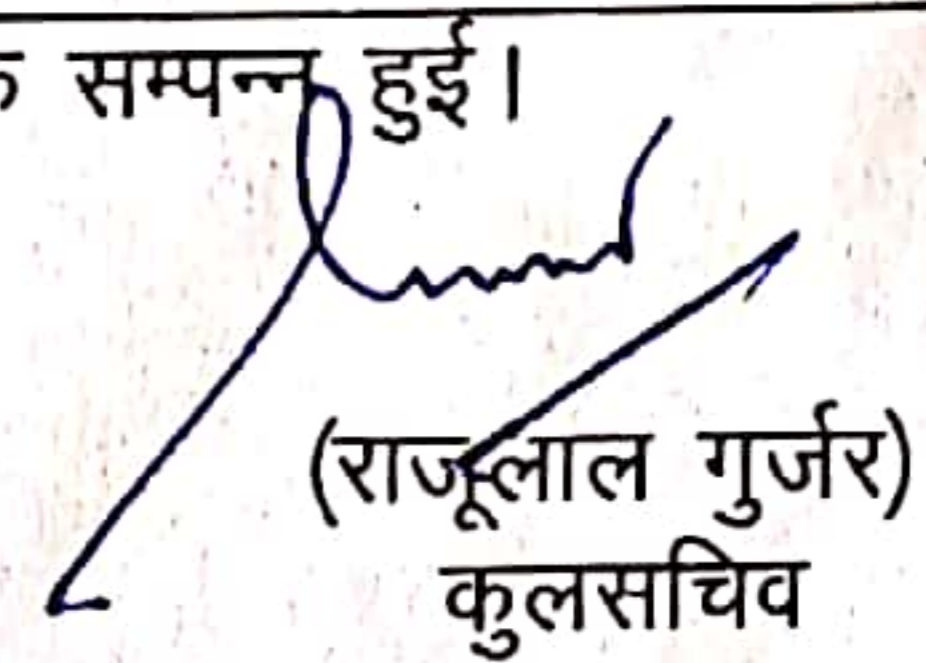 क सम्पन्न हुई।
(राजूलाल गुर्जर)
कुलसचिव